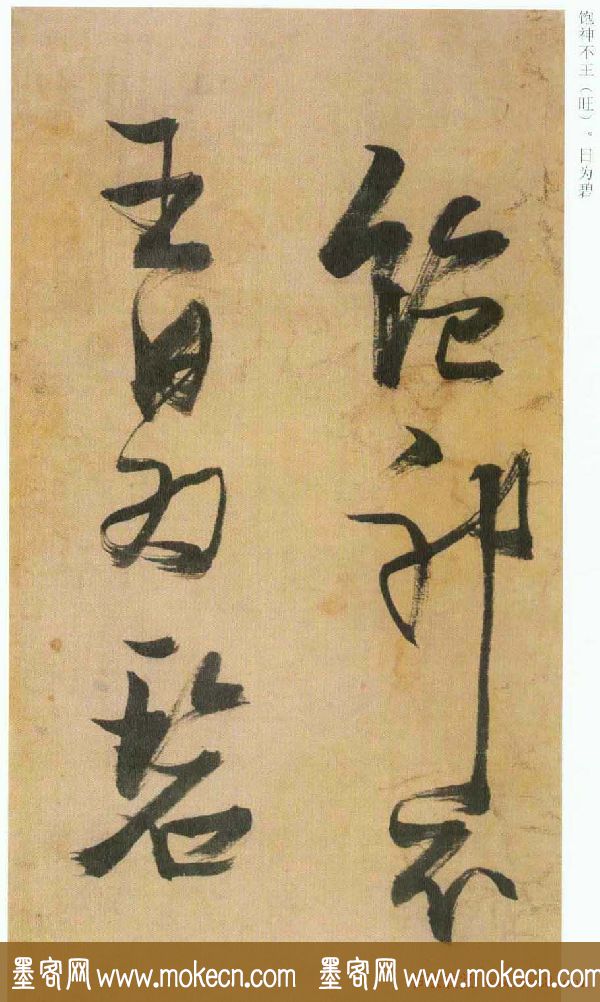 饱神不王（旺）。日为碧
飽神不
王日为碧
墨客网 www.mokecn.com 墨客网 www.mokecn.com